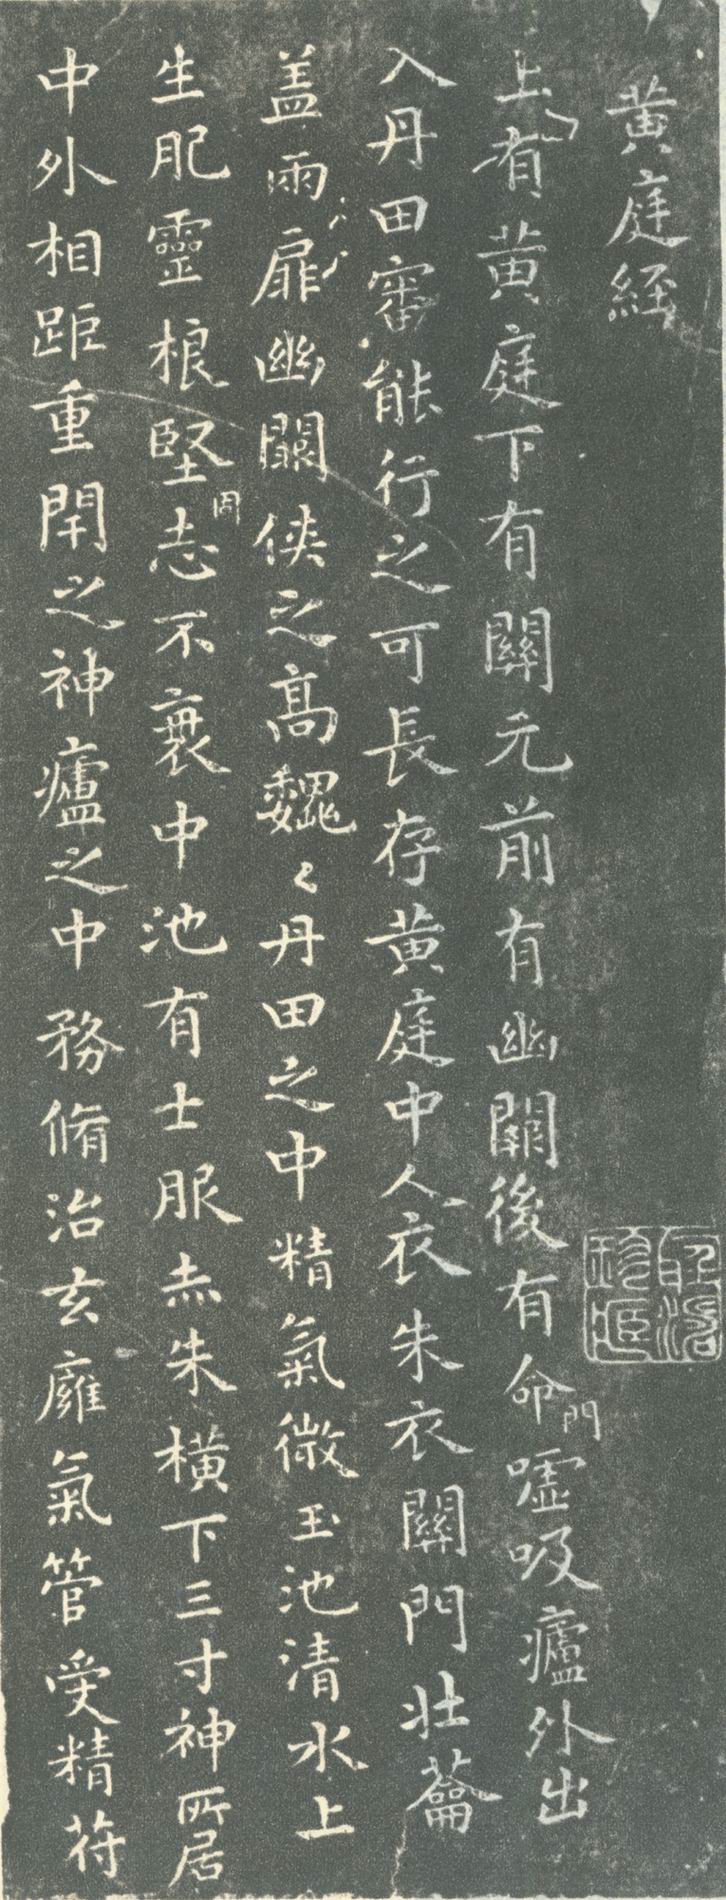 黃庭經
上有黃庭下有關元前有幽闕後有命門噓吸廬外出
入丹田審能行之可長存黃庭中人衣朱衣關門壯蘥
盖兩扉幽闕俠之高魏〻丹田之中精氣微玉池清水上
生肥靈根堅固志不衰中池有士服赤朱橫下三寸神所居
中外相距重閇之神廬之中務脩治玄廱氣管受精苻